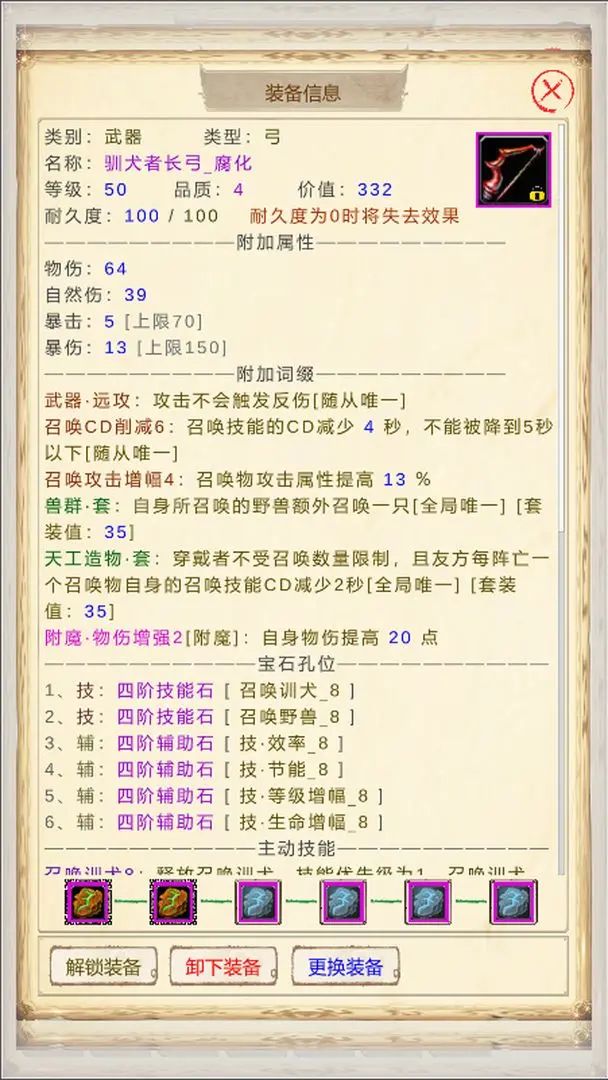 装备信息
类别：武器 类型：弓
名称：驯犬者长弓_腐化
等级：50 品质：4 价值：332
耐久度：100 / 100 耐久度为0时将失去效果
附加属性
物伤：64
自然伤：39
暴击：5 [上限70]
暴伤：13 [上限150]
附加词缀
武器·远攻：攻击不会触发反伤[随从唯一]
召唤CD削减6：召唤技能的CD减少 4 秒，不能被降到5秒
以下[随从唯一]
召唤攻击增幅4：召唤物攻击属性提高 13 %
兽群·套：自身所召唤的野兽额外召唤一只[全局唯一] [套
装值：35]
天工造物·套：穿戴者不受召唤数量限制，且友方每阵亡一
个召唤物自身的召唤技能CD减少2秒[全局唯一] [套装
值：35]
附魔·物伤增强2[附魔]：自身物伤提高 20 点
宝石孔位
1、技：四阶技能石 [ 召唤训犬_8 ]
2、技：四阶技能石 [ 召唤野兽_8 ]
3、辅：四阶辅助石 [ 技·效率_8 ]
4、辅：四阶辅助石 [ 技·节能_8 ]
5、辅：四阶辅助石 [ 技·等级增幅_8 ]
6、辅：四阶辅助石 [ 技·生命增幅_8 ]
主动技能
召唤训犬8：释放召唤训犬，技能优先级为1，召唤训犬
解锁装备 卸下装备 更换装备